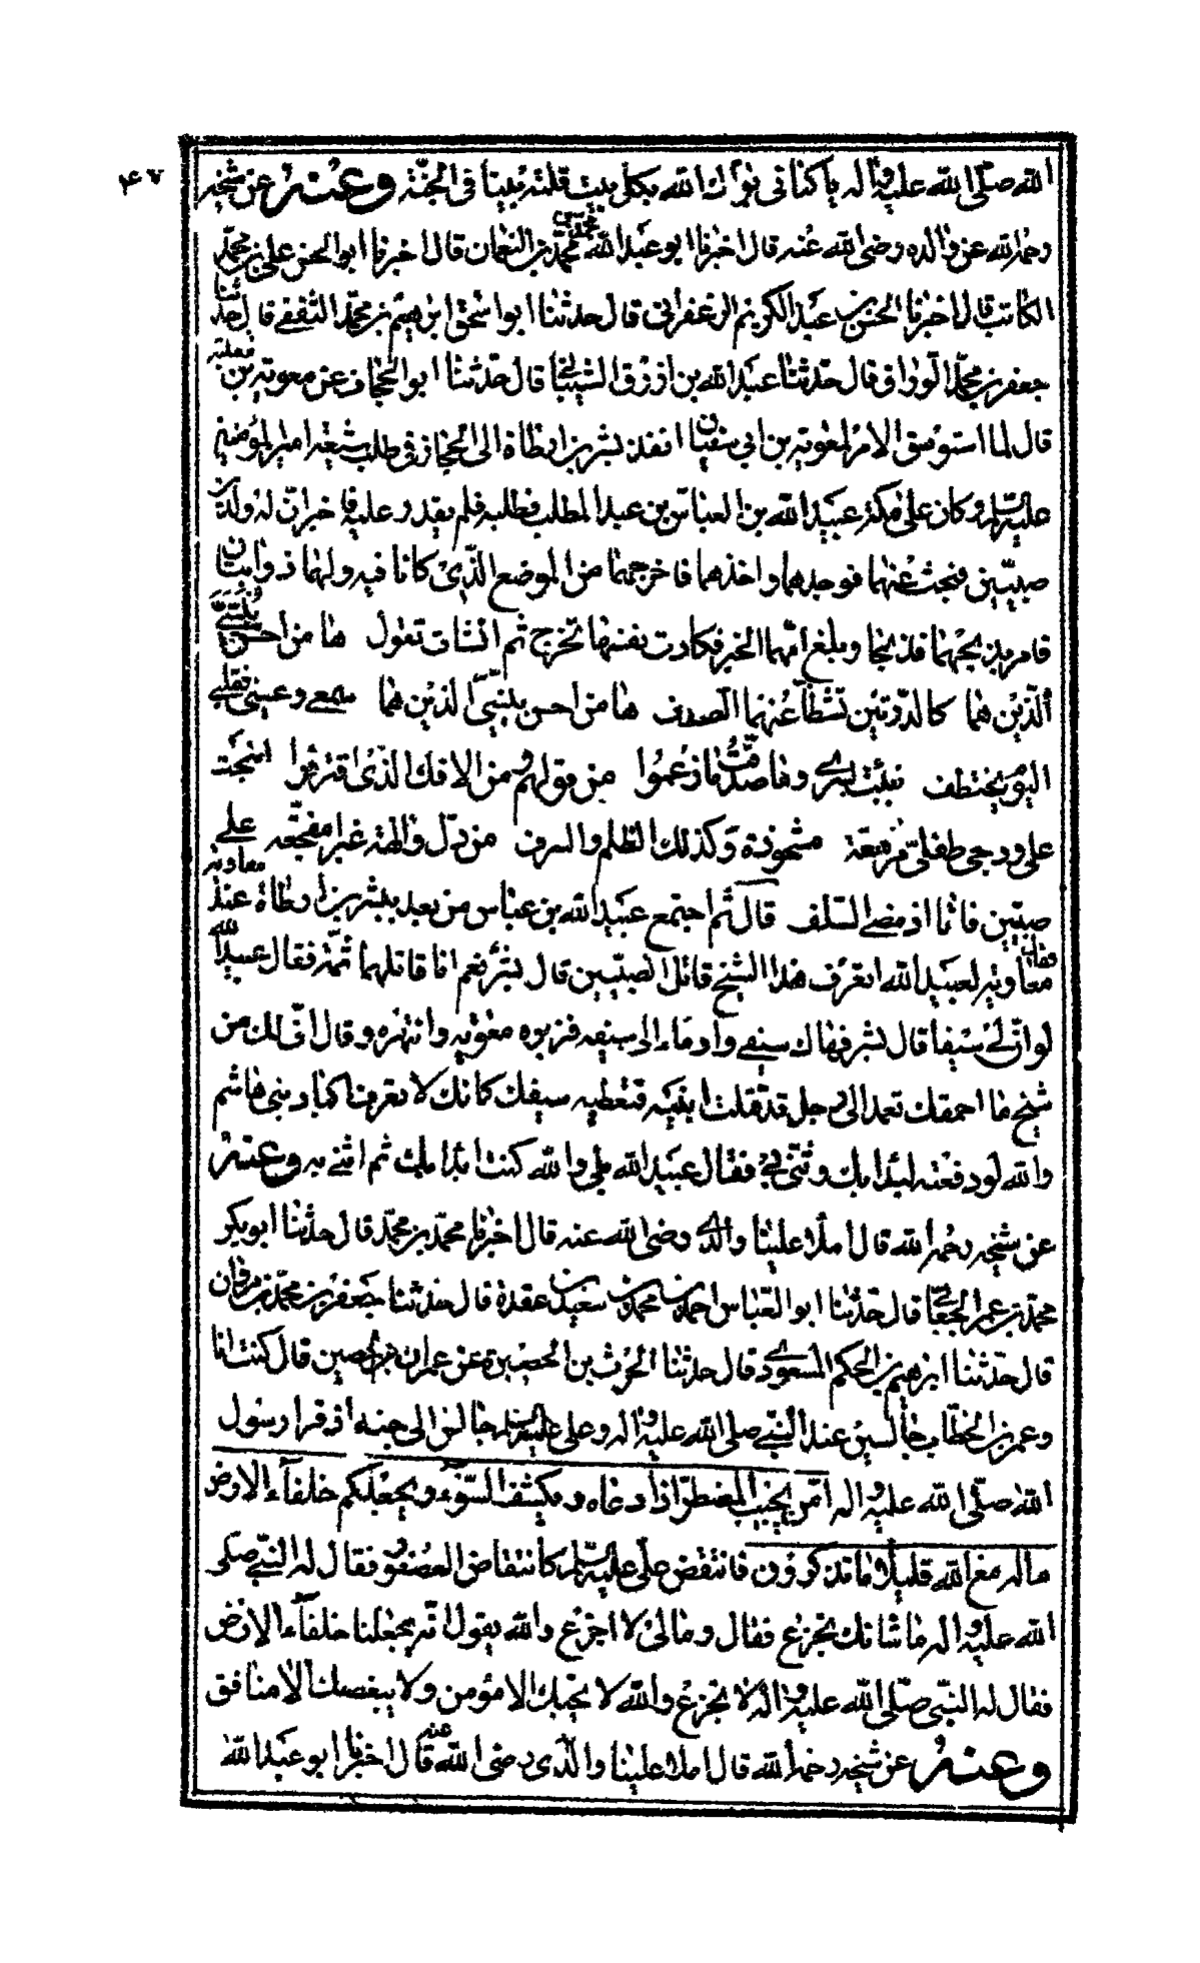 ۴۷
الله صلّى الله عليه واله يا كنانى نولك الله بكل بيت قلته بيتا فى الجنّة وعنه عن شيخه
رحمه الله عن والده رضى الله عنه قال اخبرنا ابو عبد الله محمّد بن محمّد بن النعمان قال اخبرنا ابو الحسن على بن محمّد
الكاتب قال اخبرنا الحسن بن عبد الكريم الزعفرانى قال حدثنا ابو اسحق ابرهيم بن محمّد الثقفى قال حدثنا
جعفر بن محمّد الورّاق قال حدّثنا عبد الله بن ازرق الشيبانى قال حدّثنا ابو الجحاف عن معوية بن ثعلبة
قال لما استوسق الامر لمعوية بن ابى سفيان انفذ بشر بن ارطاة الى الحجاز فى طلب شيعة امير المؤمنين
عليه السلم وكان على مكة عبيد الله بن العباس بن عبد المطلب فطلبه فلم يقدر عليه فاخبر ان له ولدين
صبيّين فبحث عنهما فوجدهما واخذهما فاخرجهما من الموضع الذى كانا فيه ولهما ذوابتان
فامر بذبحهما فذبحا وبلغ امّهما الخبر فكادت نفسها تخرج ثم انشات تقول ها من احسّ بنيّى
الّذين هما كالدّرّتين تشظّا عنهما الصدف ها من احسّ بنيّى الذين هما سمعى وعينى فقلبى
اليوم مختطف نبئت بسرى وما صدّقت ما زعموا من قولهم ومن الافك الّذى اقترفوا انحت
على ودجى طفلىّ مرهفة مشحوذة وكذلك الظلم والسرف من دلّ والهة عبرا مفجّعة على
صبيّين فاتا اذ مضى السّلف قال ثم اجتمع عبيد الله بن عباس من بعد ببشر بن ارطاة عند معاوية
فقال معاوية لعبيد الله اتعرف هذا الشيخ قاتل الصبيّين قال بشر نعم انا قاتلهما ثمّة فقال عبيد الله
لو انّ لى سيفا قال بشر فهاك سيفى واوماء الى سيفه فزبره معوية وانتهره وقال افّ لك من
شيخ ما احمقك تعمد الى رجل قد قتلت ابنيه فتعطيه سيفك كانك لا تعرف اكباد بنى هاشم
والله لو دفعته لبدا بك وثنّى بى فقال عبيد الله بلى والله كنت ابدا بك ثم اثنى به وعنه
عن شيخه رحمه الله قال املا علينا والدى رضى الله عنه قال اخبرنا محمّد بن محمّد قال حدثنا ابو بكر
محمّد بن عمر الجعابى قال حدّثنا ابو العبّاس احمد بن محمّد بن سعيد بن عقدة قال حدثنا جعفر بن محمّد بن مروان
قال حدّثنا ابرهيم بن الحكم المسعودى قال حدثنا الحرث بن الحصيرة عن عمران بن الحصين قال كنت انا
وعمر بن الخطّاب جالسين عند النبى صلى الله عليه واله وعلى عليه السلم جالس الى جنبه اذ قرا رسول
الله صلّى الله عليه واله امّن يجيب المضطرّ اذا دعاه ويكشف السّوء ويجعلكم خلفاء الارض
ءاله مع الله قليلا ما تذكرون فانتفض على عليه السلم كانتفاض العصفور فقال له النبى صلى
الله عليه واله ما شانك تجزع فقال ومالى لا اجزع والله يقول انّه يجعلنا خلفاء الارض
فقال له النبى صلّى الله عليه واله لا تجزع والله لا يحبّك الا مؤمن ولا يبغضك الا منافق
وعنه عن شيخه رحمه الله قال املا علينا والدى رضى الله عنه قال اخبرنا ابو عبد الله